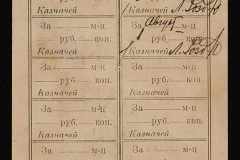 Казначей Казначей
За м-ц Август
руб. коп. руб. коп.
Казначей Казначей
За м-ц За м-ц
руб. коп. руб. коп.
Казначей Казначей
За м-ц За м-ц
руб. коп. руб. коп.
Казначей Казначей
За м-ц За м-ц
руб. коп. руб. коп.